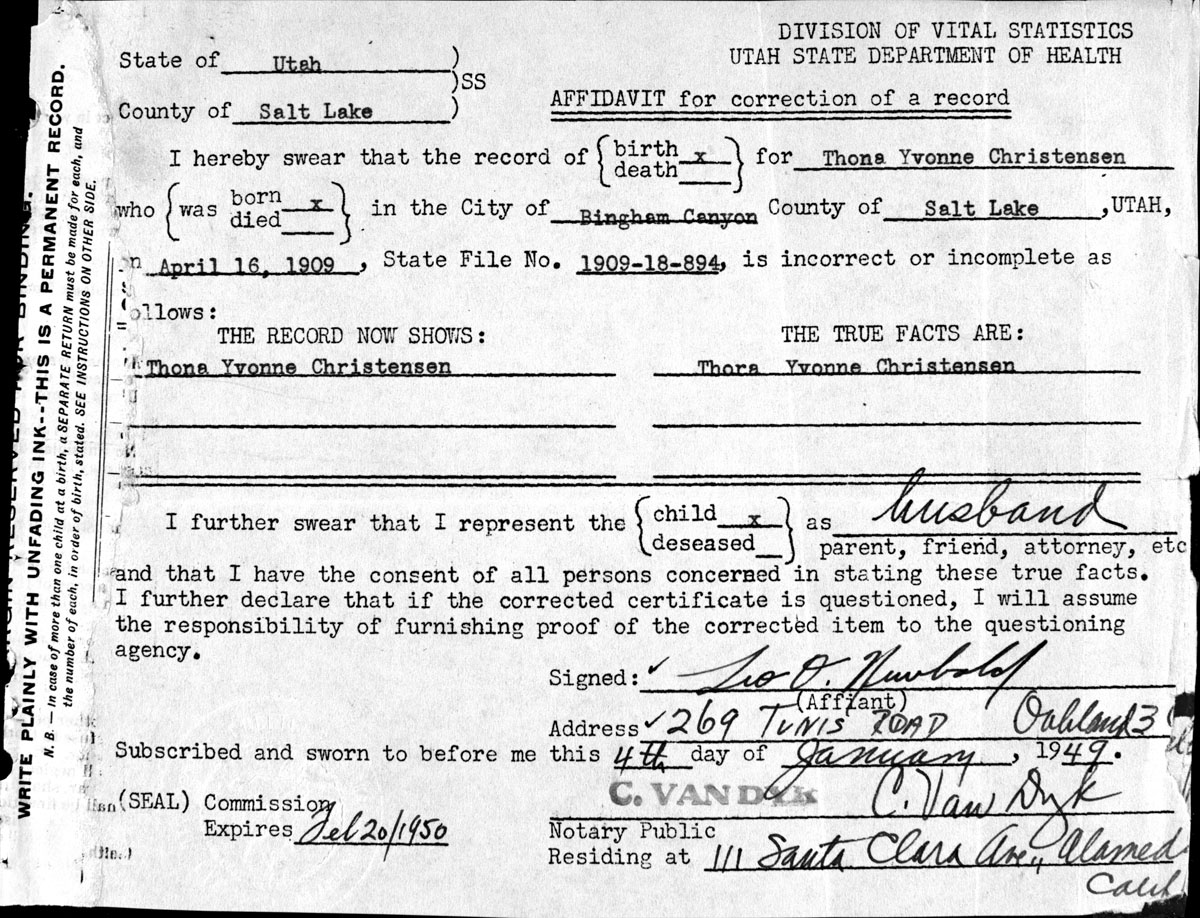 DIVISION OF VITAL STATISTICS
UTAH STATE DEPARTMENT OF HEALTH
State of Utah )
)SS
County of Salt Lake )
AFFIDAVIT for correction of a record
I hereby swear that the record of { birth x } for Thona Yvonne Christensen
death
who { was born x } in the City of Bingham Canyon County of Salt Lake ,UTAH,
died
n April 16, 1909 , State File No. 1909-18-894, is incorrect or incomplete as
ollows:
THE RECORD NOW SHOWS: THE TRUE FACTS ARE:
Thona Yvonne Christensen Thora Yvonne Christensen
I further swear that I represent the { child x } as husband
deseased parent, friend, attorney, etc
and that I have the consent of all persons concerned in stating these true facts.
I further declare that if the corrected certificate is questioned, I will assume
the responsibility of furnishing proof of the corrected item to the questioning
agency.
Signed: Leo O. Newbold
(Affiant)
Address 269 TUNIS ROAD Oakland 3
Subscribed and sworn to before me this 4th day of January, 1949.
C. VAN DYK C. Van Dyk
(SEAL) Commission
Expires Feb 20/1950
Notary Public
Residing at 111 Santa Clara Ave., Alamed
Calif
WRITE PLAINLY WITH UNFADING INK--THIS IS A PERMANENT RECORD.
N. B. — In case of more than one child at a birth, a SEPARATE RETURN must be made for each, and
the number of each, in order of birth, stated. SEE INSTRUCTIONS ON OTHER SIDE.